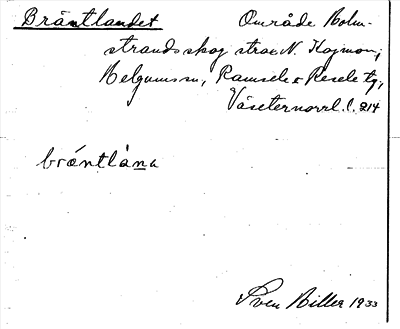 Bräntlandet Område Holm-
strandsskog strax N. Kojmon,
Helgumssn, Ramsele & Resele tg,
Västernorrl. l. 214
bräntlåna
Sven Biller 1933